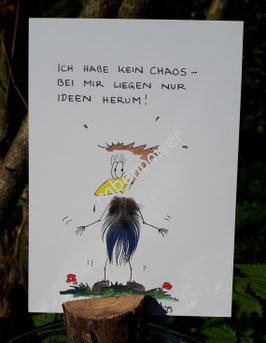 ICH HABE KEIN CHAOS –
BEI MIR LIEGEN NUR
IDEEN HERUM!